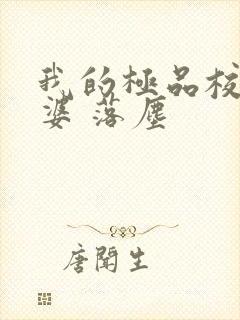 我的極品校
婆 落塵
唐聞生